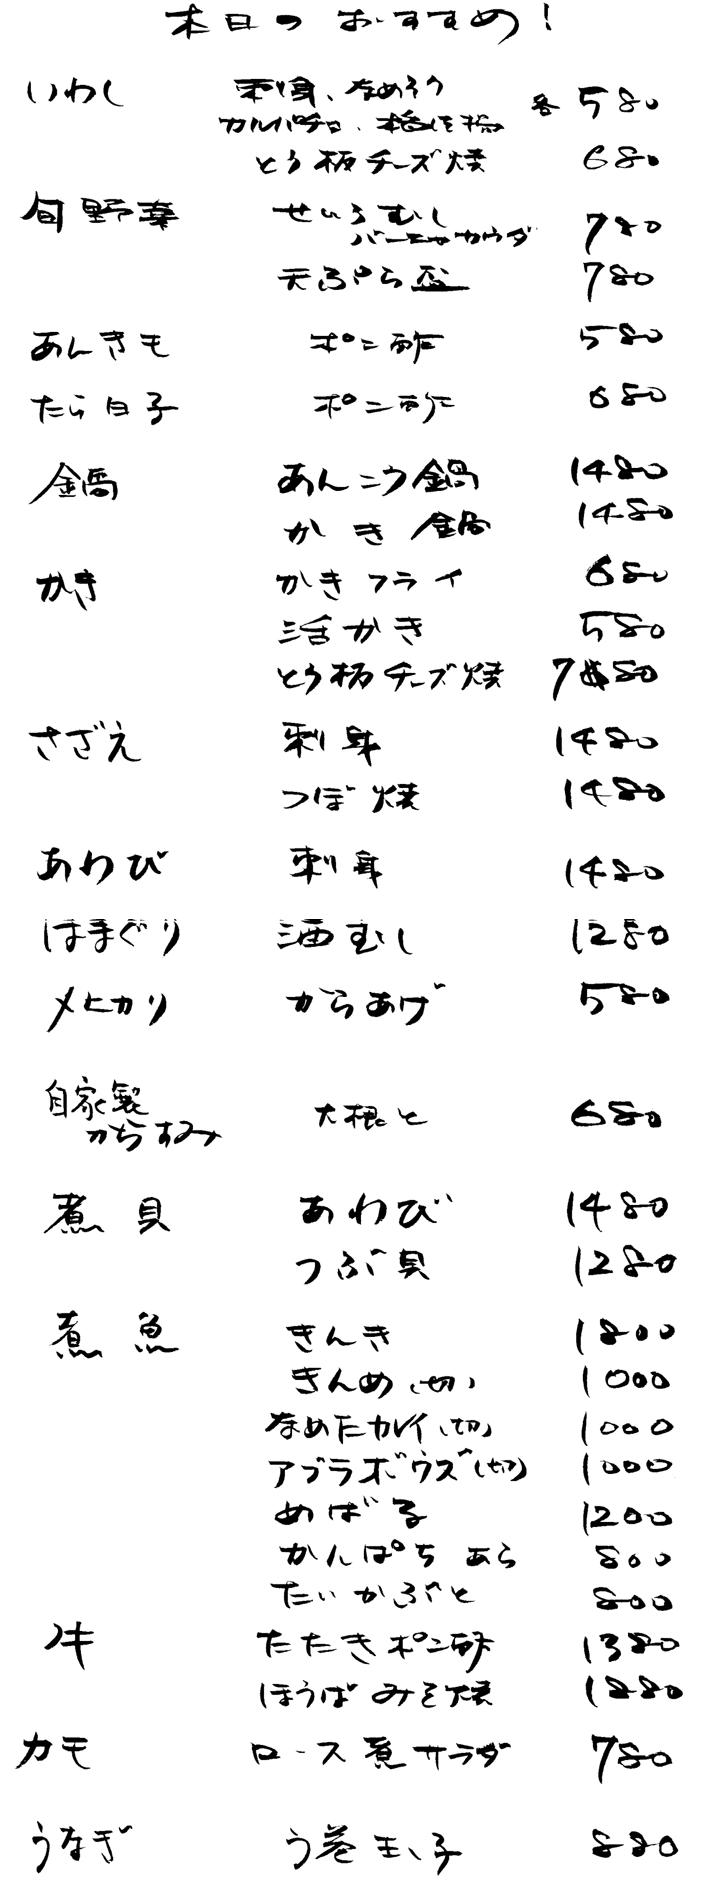 本日のおすすめ!
いわし 刺身、なめろう
カルパチョ、梅しそ揚 各 580
とう板チーズ焼 680
旬野菜 せいろむし
バーニャカウダ 780
天ぷら盛 780
あんきも ポン酢 580
たら白子 ポン酢 680
鍋 あんこう鍋 1480
かき鍋 1480
かき かきフライ 680
活かき 580
とう板チーズ焼 780
さざえ 刺身 1480
つぼ焼 1480
あわび 刺身 1480
はまぐり 酒むし 1280
メヒカリ からあげ 580
自家製
からすみ 大根と 680
煮貝 あわび 1480
つぶ貝 1280
煮魚 きんき 1800
きんめ(切) 1000
なめたカレイ(切) 1000
アブラボウズ(切) 1000
めばる 1200
かんぱちあら 800
たいかぶと 800
牛 たたきポン酢 1380
ほうばみそ焼 1280
カモ ロース煮サラダ 780
うなぎ う巻玉子 880